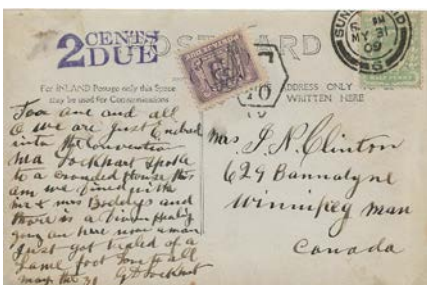 2 CENTS
DUE
POSTCARD
SUNDERLAND
MY 31
09
For INLAND Postage only this Space
may be used for Communications
ADDRESS ONLY
WRITTEN HERE
and all
we are just
into the Convention
Lockhart spoke
to a crowded house this
am we dined with
Mr & Mrs and
there is a
going on here now a man
just got healed of a
lame foot love to all
may the 31 G Lockhart
Mrs J. N. Clinton
629 Bannatyne
Winnipeg man
Canada